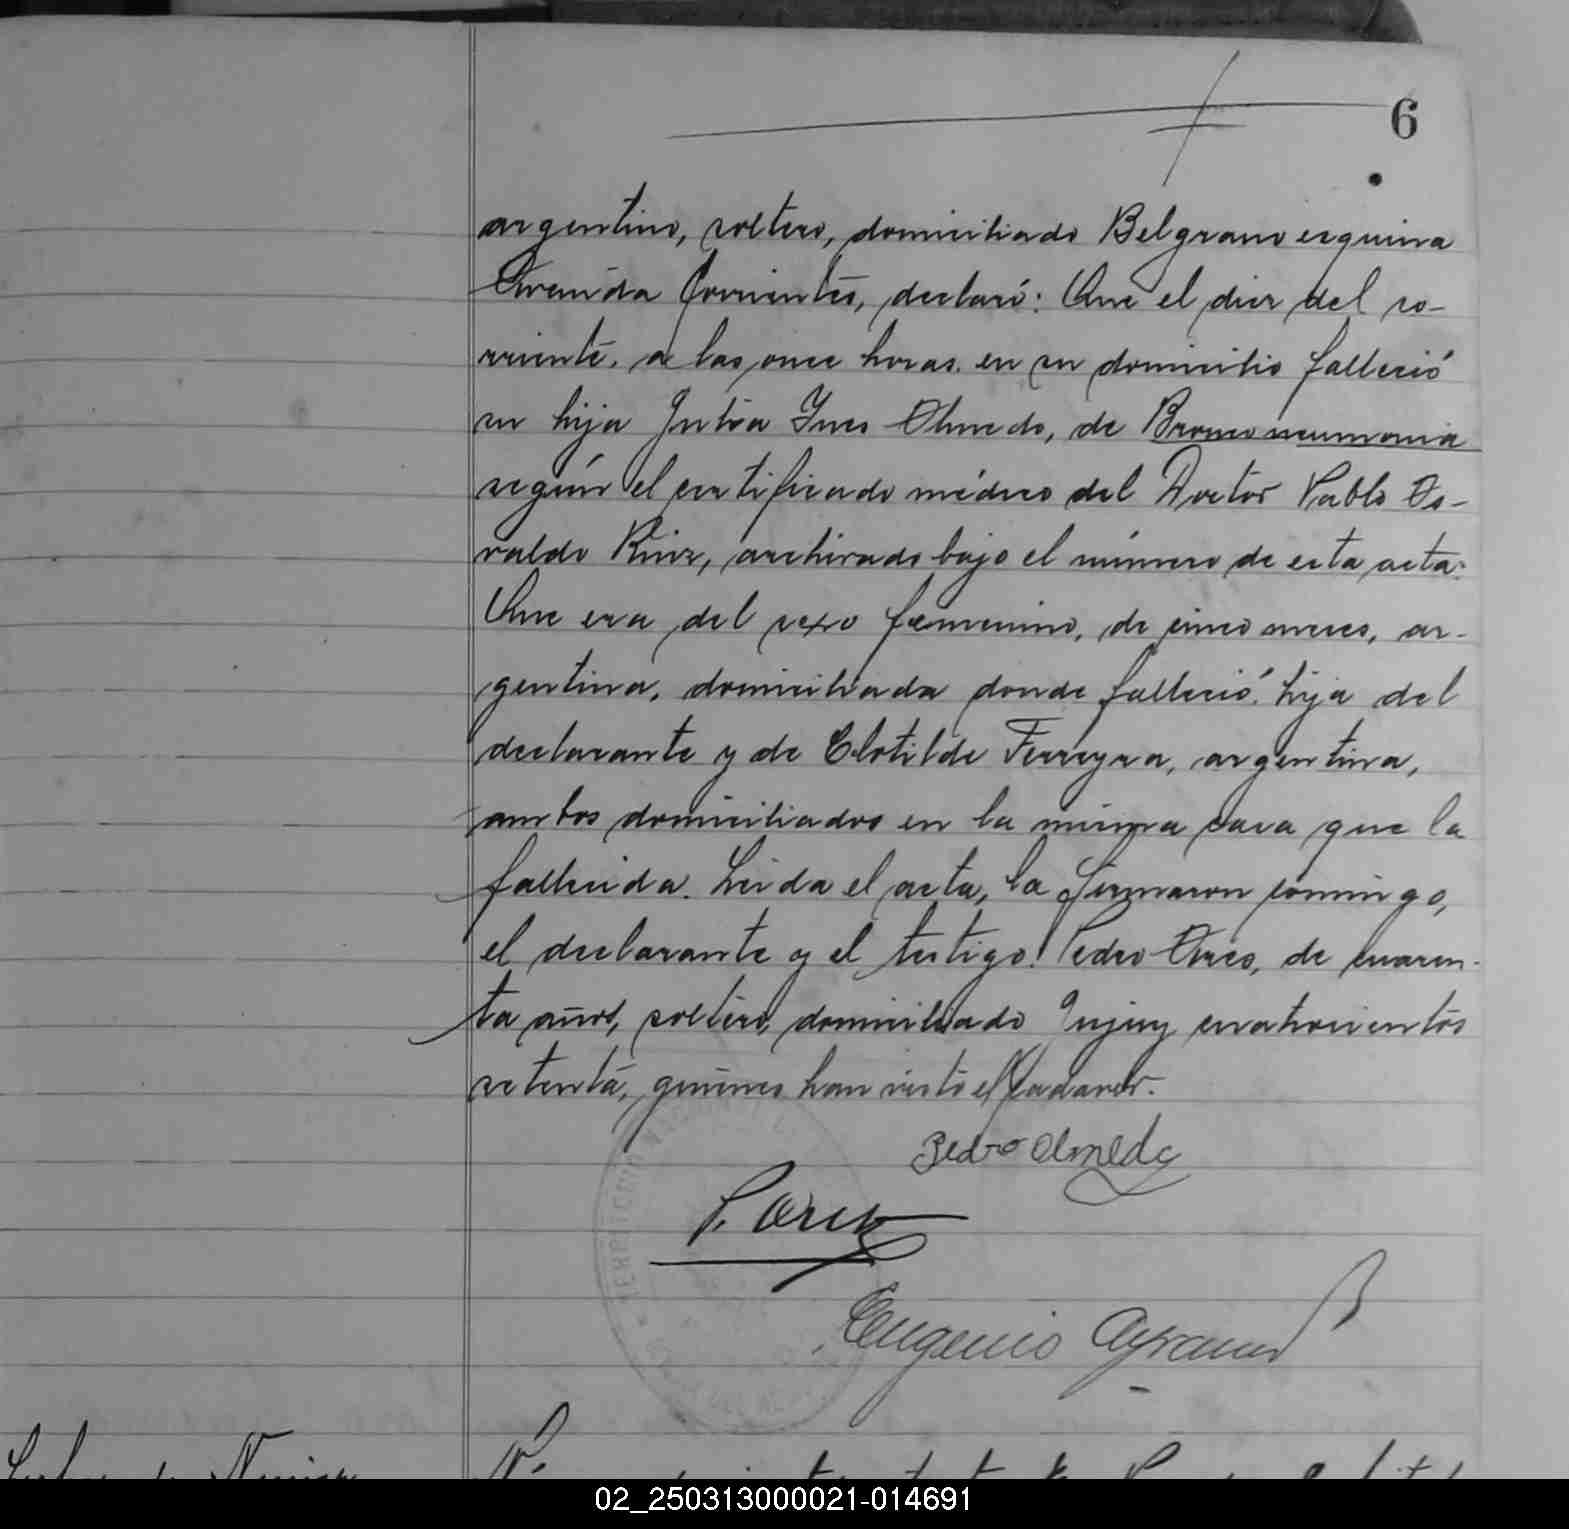 6
argentino, soltero, domiciliado Belgrano esquina
Avenida Corrientes, declaró: Que el diez del co-
rriente, a las once horas, en su domicilio falleció
su hija Julia Ines Olmedo, de Bronconeumonia
según el certificado médico del Doctor Pablo Os-
valdo Ruiz, archivado bajo el número de esta acta:
Que era del sexo femenino, de cinco meses, ar-
gentina, domiciliada donde falleció, hija del
declarante y de Clotilde Ferreyra, argentina,
ambos domiciliados en la misma casa que la
fallecida. Leida el acta, la firmaron conmigo,
el declarante y el testigo: Pedro Orres, de cuaren-
ta años, soltero, domiciliado Jujuy cuatrocientos
setenta, quienes han visto el cadaver.
Pedro Olmedo
P. Orres
Eugenio
02_250313000021-014691